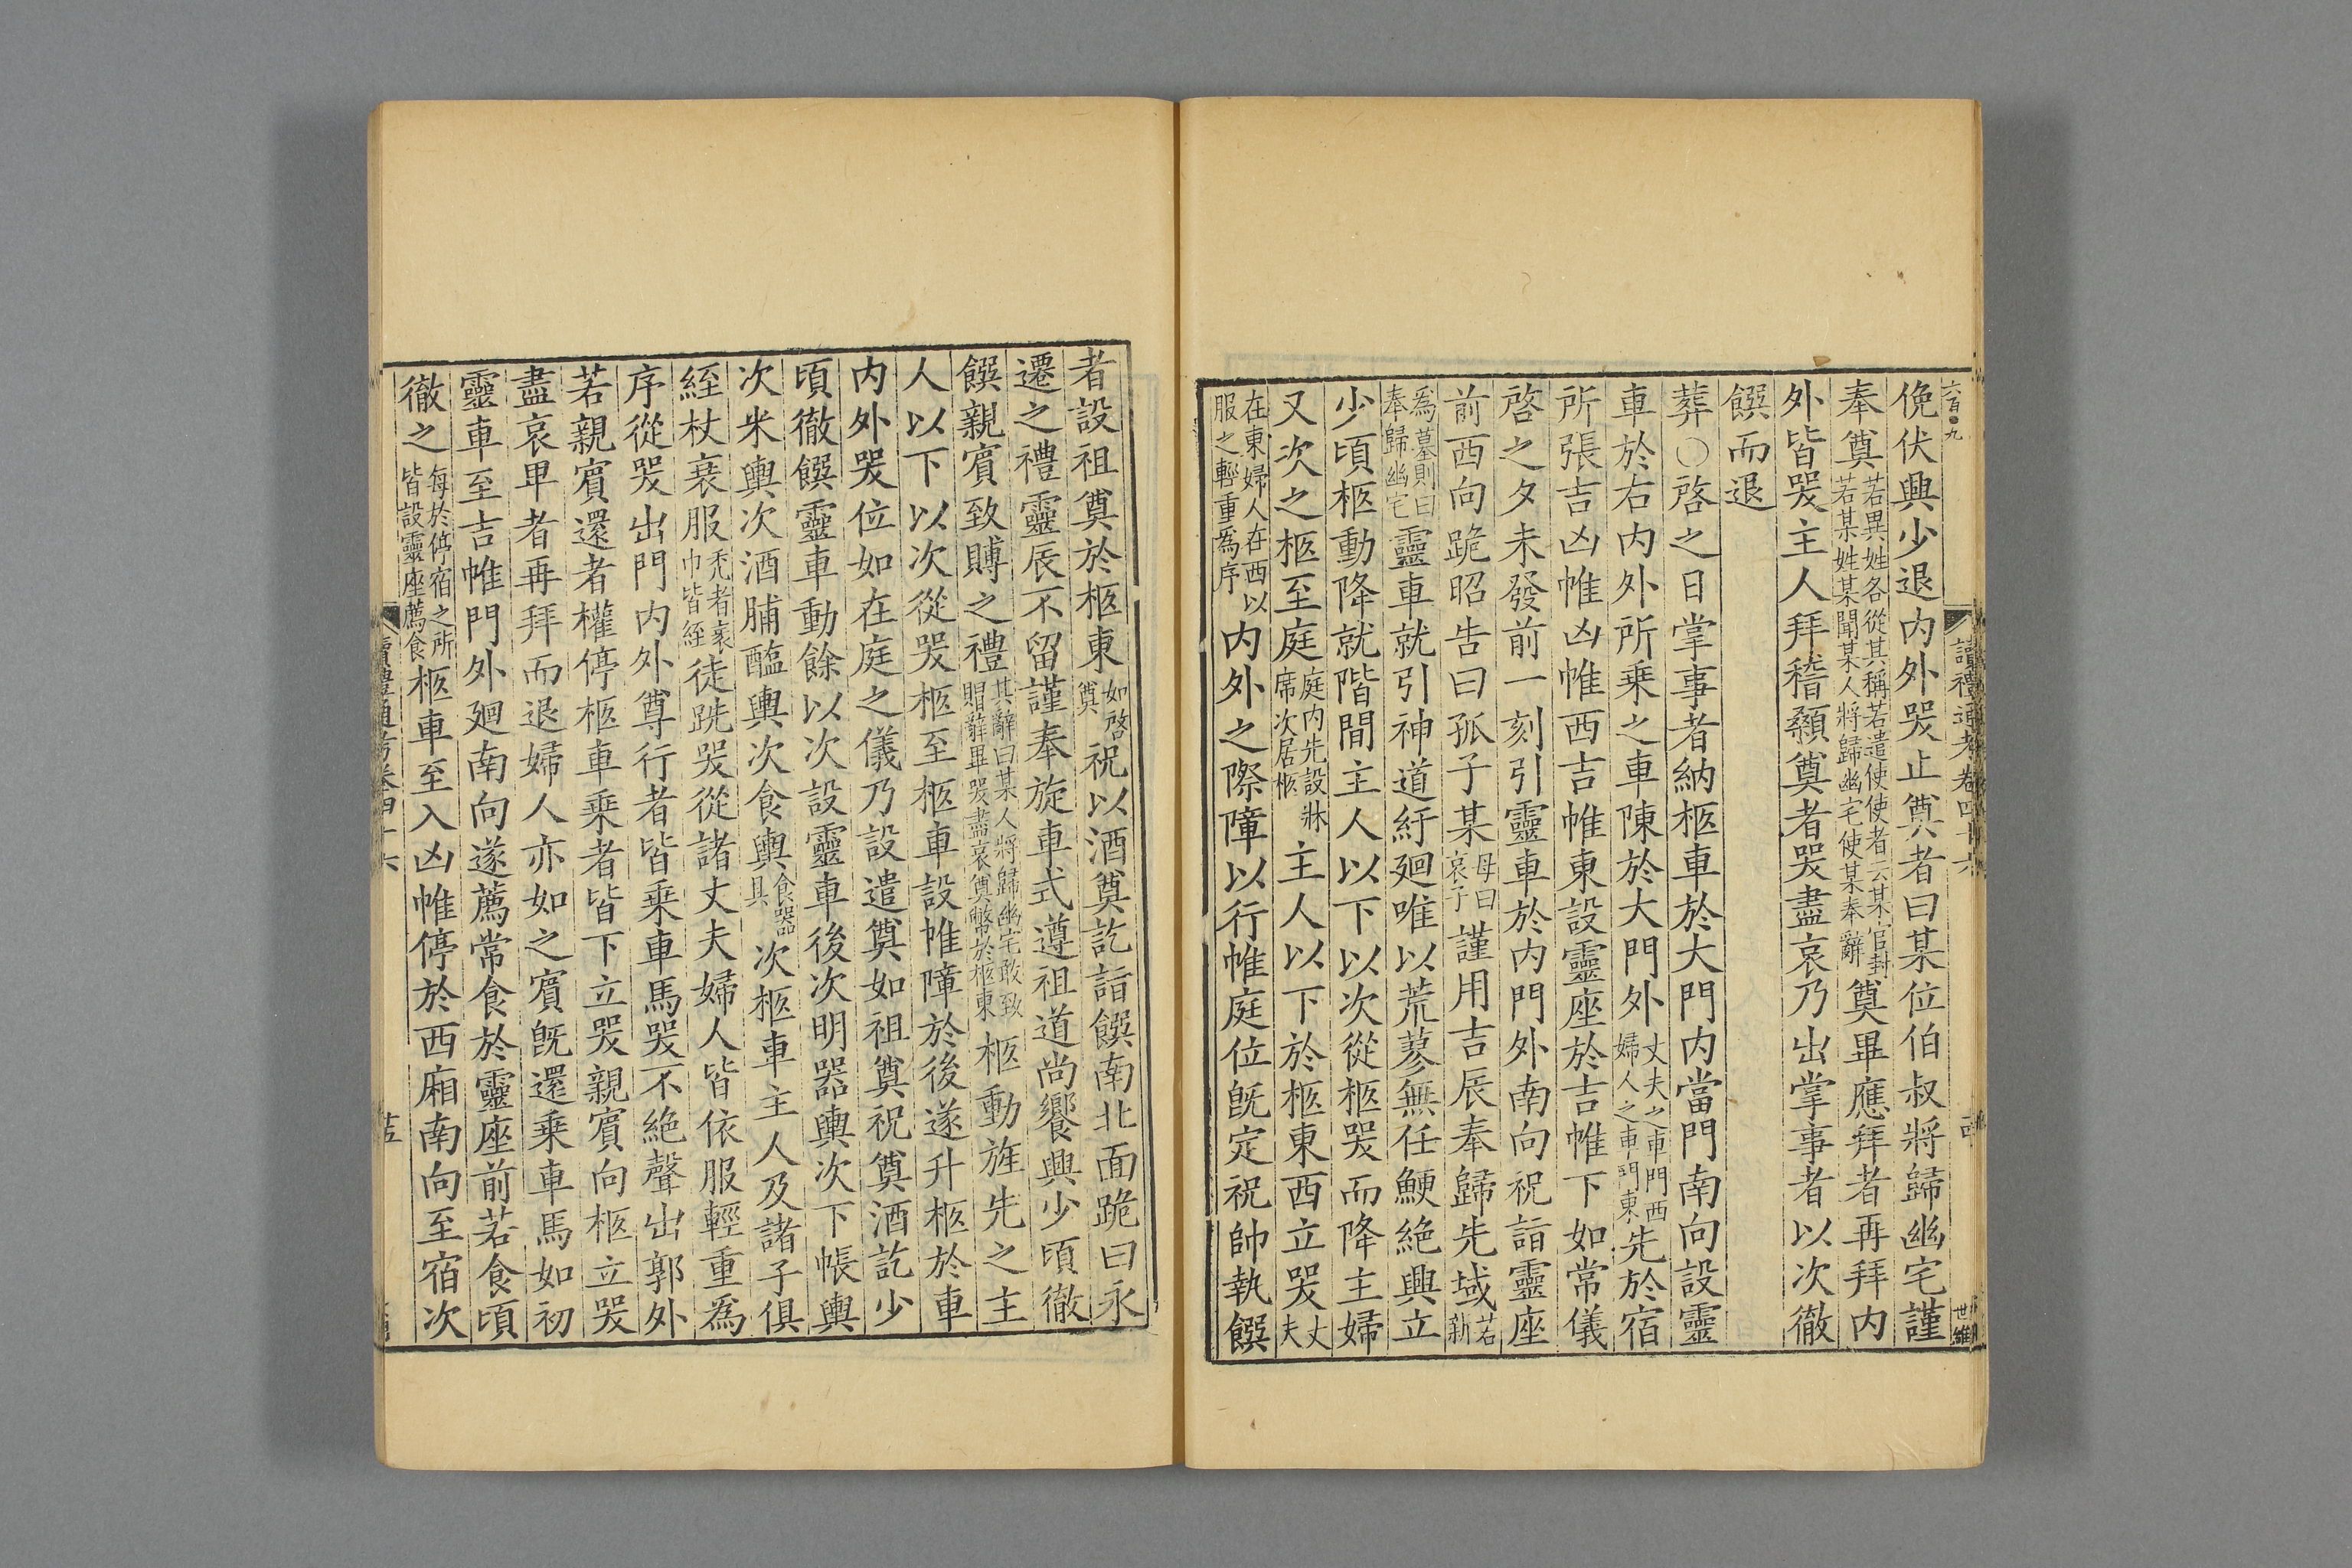 六百〇九
讀禮通考卷四十六
世維
俛伏興少退内外哭止奠者曰某位伯叔將歸幽宅謹
奉奠若異姓各從其稱若遣使使者云某官封若某姓某聞某人將歸幽宅使某奉辭奠畢應拜者再拜内
外皆哭主人拜稽顙奠者哭盡哀乃出掌事者以次徹
饌而退
葬〇啓之日掌事者納柩車於大門内當門南向設靈
車於右内外所乘之車陳於大門外丈夫之車門西婦人之車門東先於宿
所張吉凶帷凶帷西吉帷東設靈座於吉帷下如常儀
啓之夕未發前一刻引靈車於内門外南向祝詣靈座
前西向跪昭告曰孤子某母曰哀子謹用吉辰奉歸先域若新
爲墓則曰奉歸幽宅靈車就引神道紆廻唯以荒蓼無任鯁絶興立
少頃柩動降就階間主人以下以次從柩哭而降主婦
又次之柩至庭庭内先設牀席次居柩主人以下於柩東西立哭丈夫
在東婦人在西以服之輕重爲序内外之際障以行帷庭位旣定祝帥執饌
者設祖奠於柩東如啓奠祝以酒奠訖詣饌南北面跪曰永
遷之禮靈辰不留謹奉旋車式遵祖道尚饗興少頃徹
饌親賓致賻之禮其辭曰某人將歸幽宅敢致賵辭畢哭盡哀奠幣於柩東柩動旌先之主
人以下以次從哭柩至柩車設帷障於後遂升柩於車
内外哭位如在庭之儀乃設遣奠如祖奠祝奠酒訖少
頃徹饌靈車動餘以次設靈車後次明器輿次下帳輿
次米輿次酒脯醢輿次食輿食器具次柩車主人及諸子俱
絰杖衰服禿者衰巾皆絰徒跣哭從諸丈夫婦人皆依服輕重爲
序從哭出門内外尊行者皆乘車馬哭不絶聲出郭外
若親賓還者權停柩車乘者皆下立哭親賓向柩立哭
盡哀卑者再拜而退婦人亦如之賓旣還乘車馬如初
靈車至吉帷門外廻南向遂薦常食於靈座前若食頃
徹之每於停宿之所皆設靈座薦食柩車至入凶帷停於西廂南向至宿次
讀禮通考卷四十六